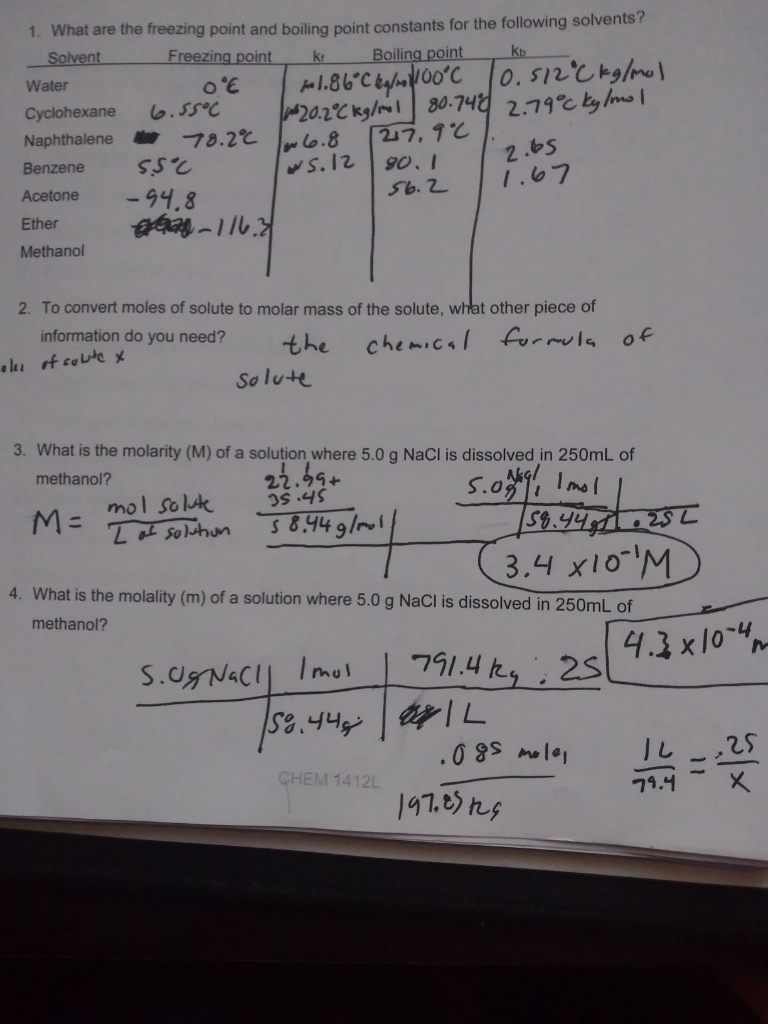 1. What are the freezing point and boiling point constants for the following solvents?
Solvent Freezing point kf Boiling point kb
Water 0°C 1.86°C kg/mol 100°C 0.512°C kg/mol
Cyclohexane 6.55°C 20.2°C kg/mol 80.74°C 2.79°C kg/mol
Naphthalene 78.2°C 6.8 217.9°C
Benzene 5.5°C 5.12 80.1 2.65
Acetone -94.8 56.2 1.67
Ether -116.3
Methanol
2. To convert moles of solute to molar mass of the solute, what other piece of
information do you need? the chemical formula of
of solute x
solute
3. What is the molarity (M) of a solution where 5.0 g NaCl is dissolved in 250mL of
methanol?
22.99+
35.45
58.44 g/mol
M = mol solute
L of solution
5.0g NaCl 1 mol
58.44g .25L
3.4 x10⁻¹M
4. What is the molality (m) of a solution where 5.0 g NaCl is dissolved in 250mL of
methanol?
4.3 x10⁻⁴ m
5.0g NaCl 1mol 791.4 kg .25
58.44g 1L
.085 moles
197.85 kg
1L = .25
79.4 x
CHEM 1412L